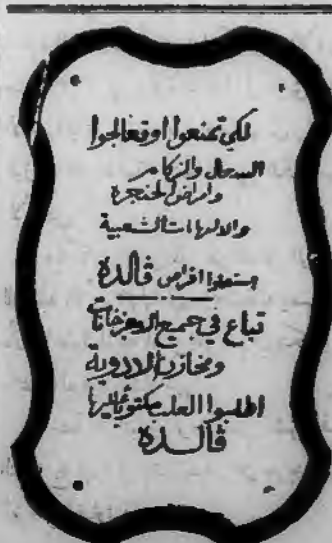 لكي تمنعوا او تعالجوا
السعال والزكام
وامراض الحنجرة
والالتهابات الشعبية
استعملوا اقراص ڤالده
تباع في جميع الاجزاخانات
ومخازن الادوية
اطلبوا العلب مكتوبا عليها
ڤالده